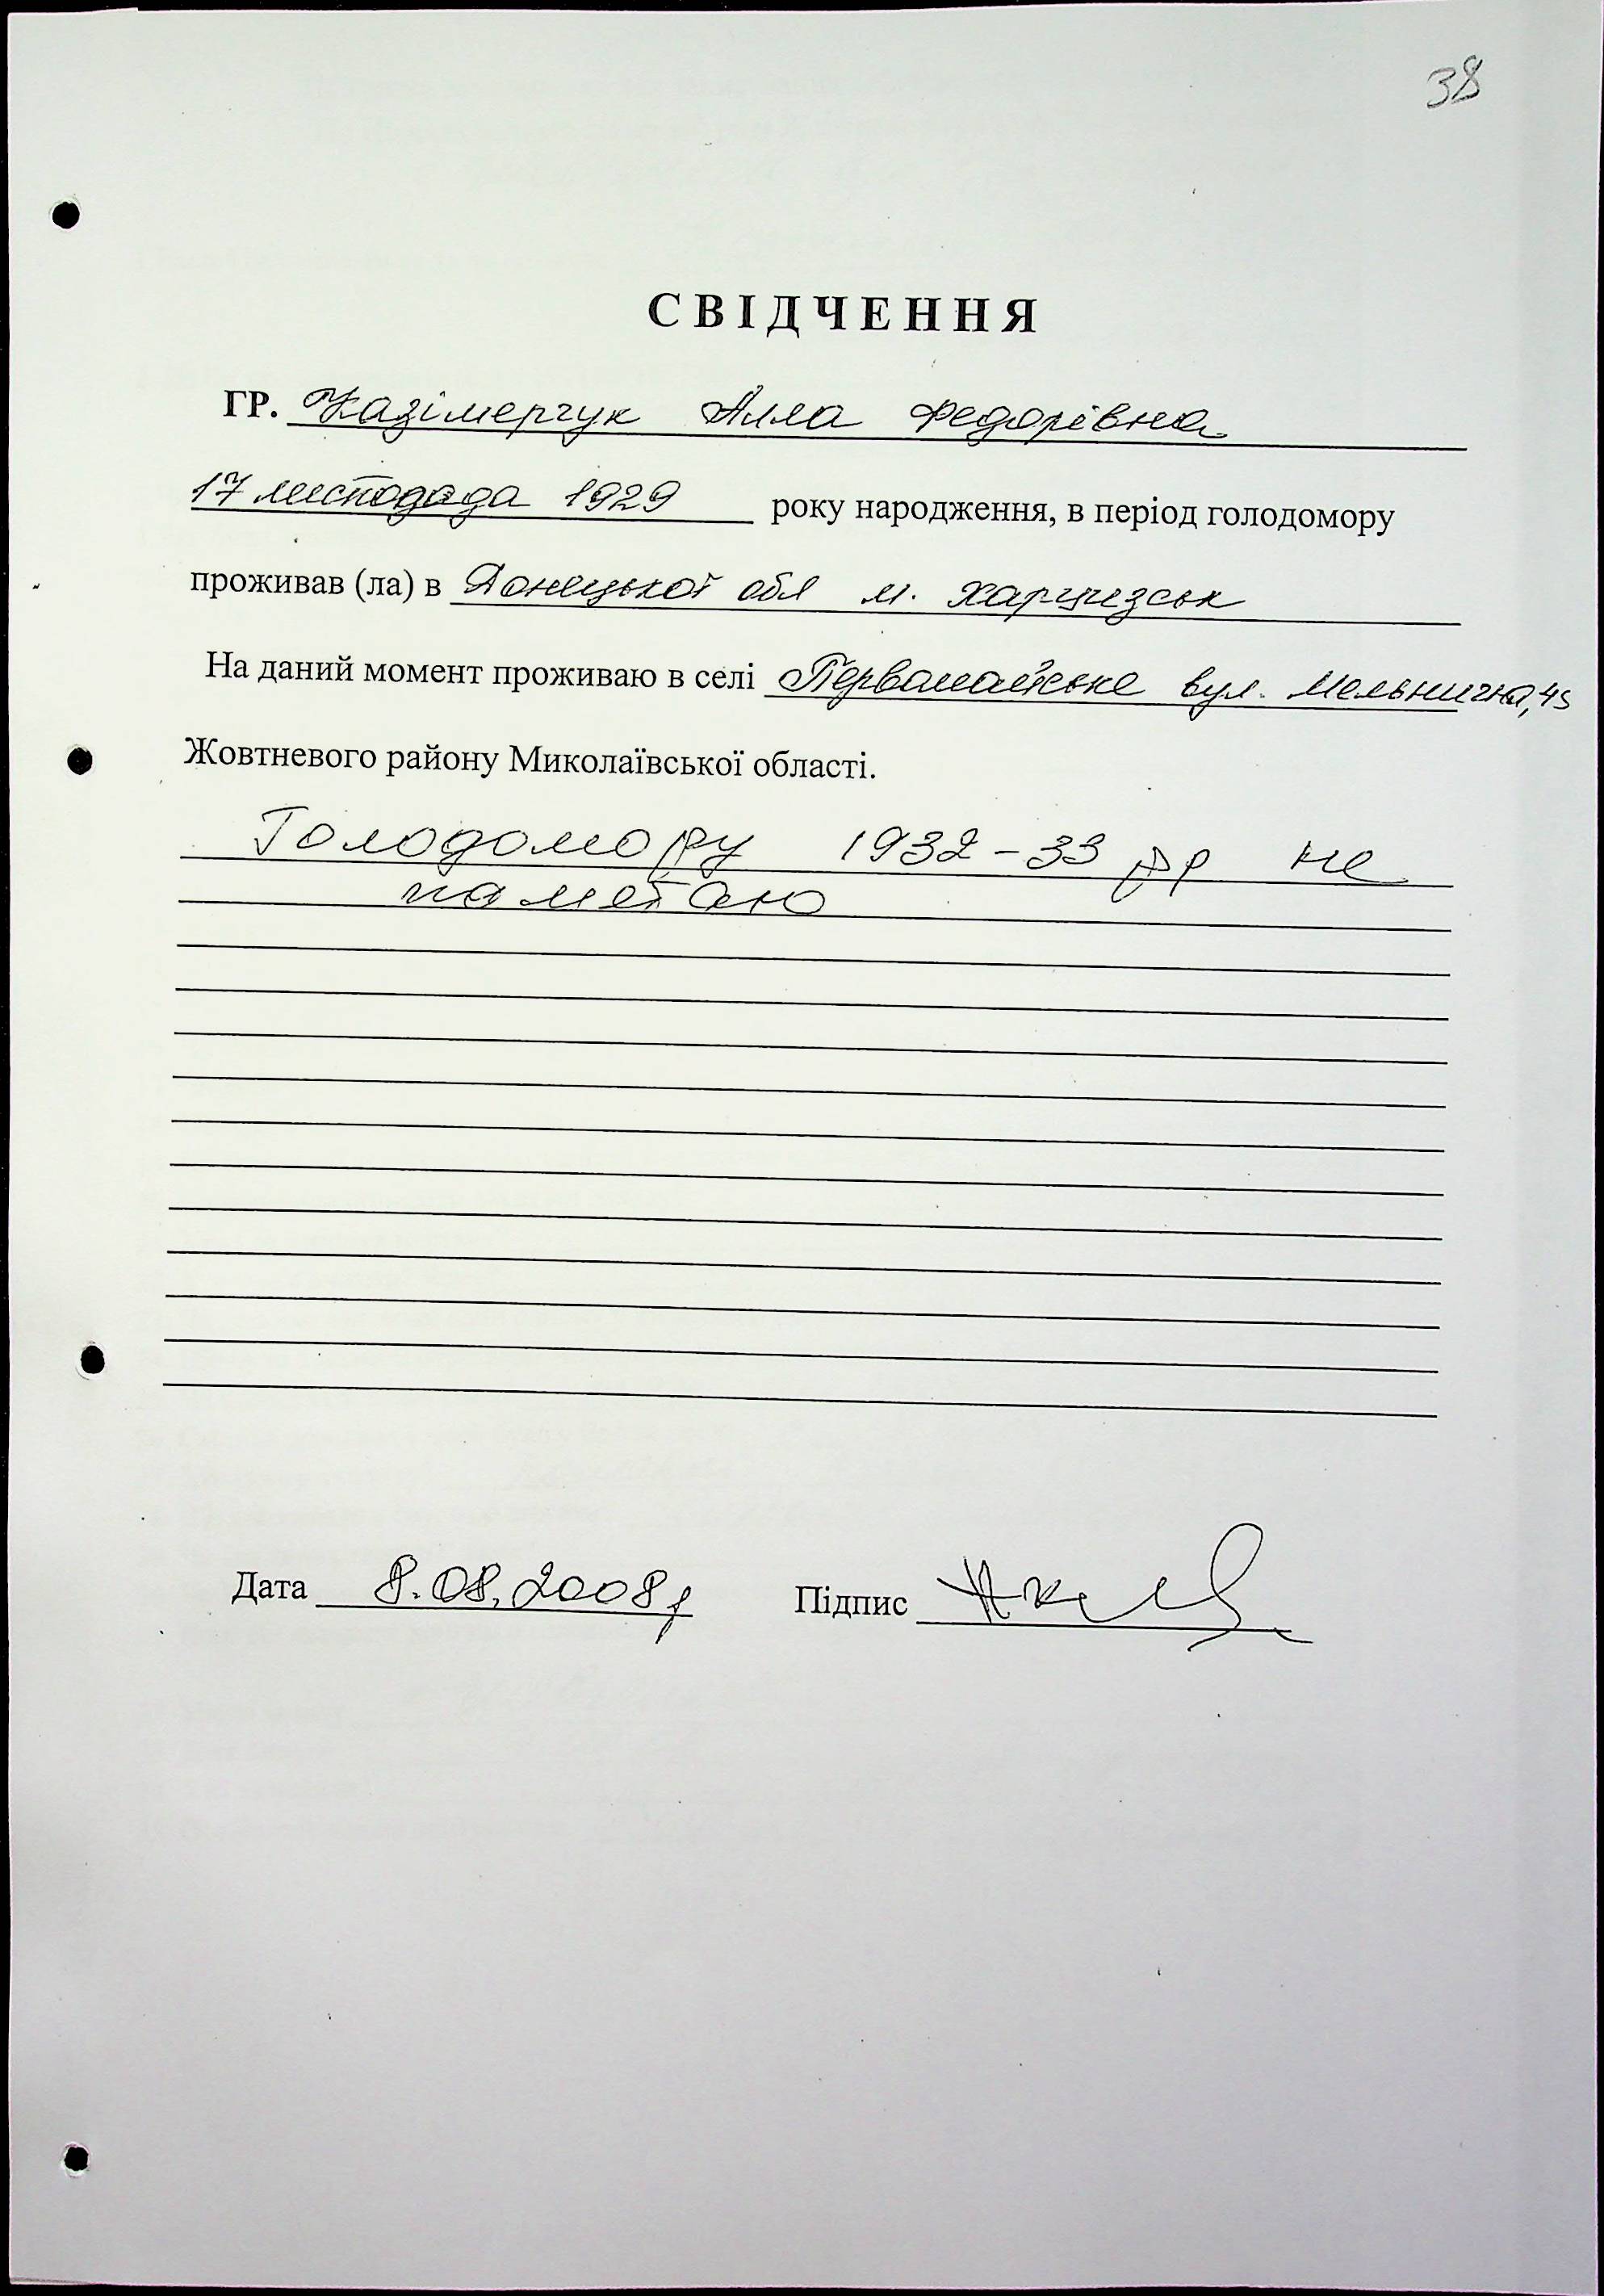 38
СВІДЧЕННЯ
ГР. Казімерчук Алла Федорівна
17 листопада 1929 року народження, в період голодомору
проживав (ла) в Донецької обл м. Харцизськ
На даний момент проживаю в селі Первомайське вул. Мельнична, 45
Жовтневого району Миколаївської області.
Голодомору 1932-33 рр не
паметаю
Дата 8.08.2008р Підпис